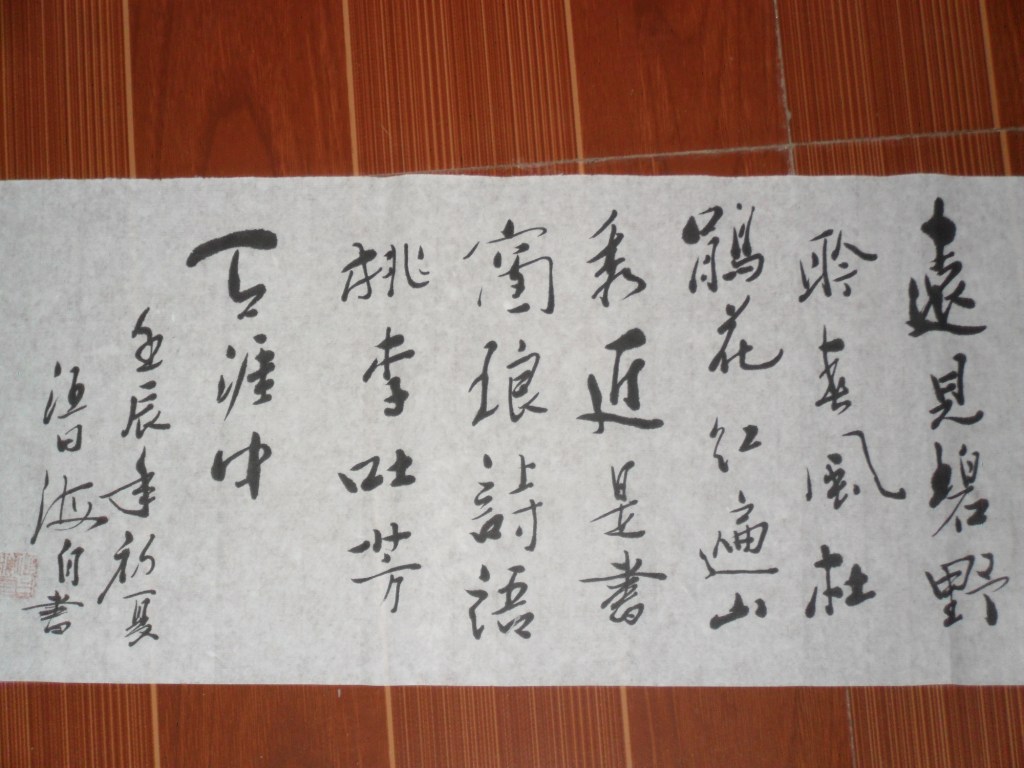 遠見碧野
聆春風杜
鵑花紅遍山
秀近是書
窗琅詩語
桃李吐芳
天涯中
壬辰年初夏
海自書